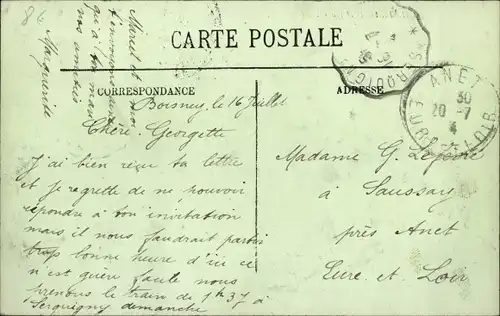 CARTE POSTALE
CORRESPONDANCE
ADRESSE
Boisney, le 16 Juillet
Chère Georgette
J'ai bien reçu ta lettre
et je regrette de ne pouvoir
répondre à ton invitation
mais il nous faudrait partir
trop bonne heure d'ici ce
n'est guère facile nous
prenons le train de 1h37 à
Serquigny dimanche
Marcel et moi
t'envoient
qu'à ton mari
nos amitiés
Marguerite
Madame G.
à Saussay
près Anet
Eure et Loir
ANET
30
20 -7
EURE-ET-LOIR